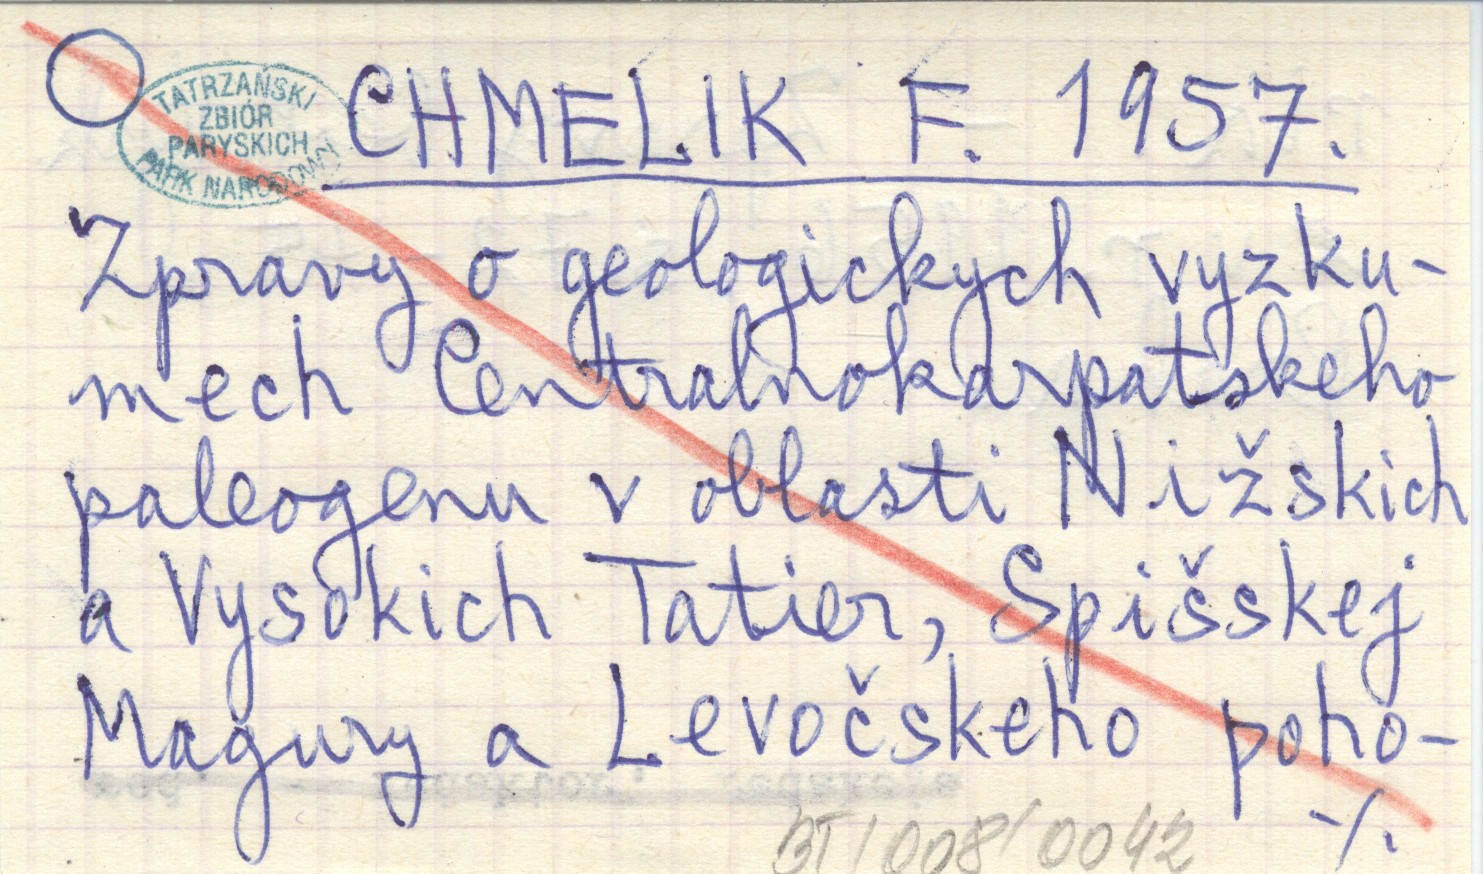 TATRZAŃSKI
ZBIÓR
PARYSKICH
PARK NARODOWY
CHMELIK F. 1957.
Zpravy o geologickych vyzku-
mech Centralnokarpatskeho
paleogenu v oblasti Nižskich
a Vysokich Tatier, Spišskej
Magury a Levočskeho poho-
-/.
BT/008/0042